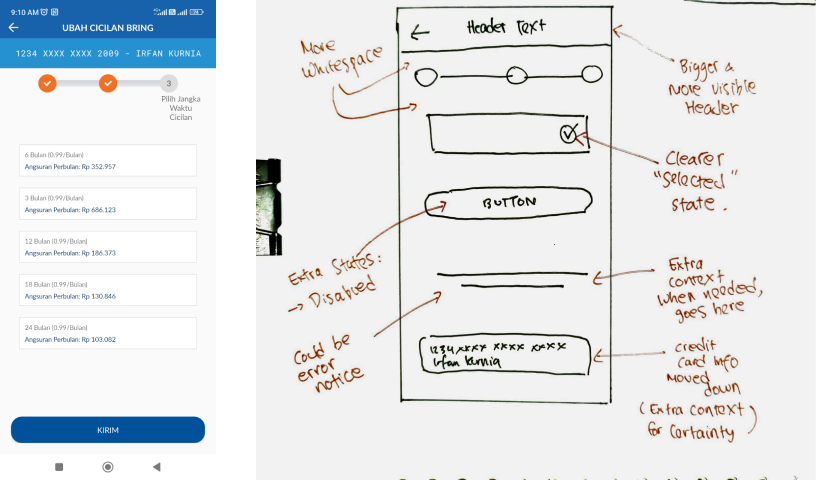 9:10 AM
UBAH CICILAN BRING
1234 XXXX XXXX 2009 - IRFAN KURNIA
3
Pilih Jangka
Waktu
Cicilan
6 Bulan (0.99/Bulan)
Angsuran Perbulan: Rp 352.957
3 Bulan (0.99/Bulan)
Angsuran Perbulan: Rp 686.123
12 Bulan (0.99/Bulan)
Angsuran Perbulan: Rp 186.373
18 Bulan (0.99/Bulan)
Angsuran Perbulan: Rp 130.846
24 Bulan (0.99/Bulan)
Angsuran Perbulan: Rp 103.082
KIRIM
Header Text
More
Whitespace
Bigger &
more visible
Header
Clearer
"Selected"
state.
BUTTON
Extra States:
→ Disabled
Extra
context
when needed,
goes here
Could be
error
notice
1234 xxxx xxxx xxxx
Irfan Kurnia
credit
card info
moved
down
(Extra context)
for Certainty